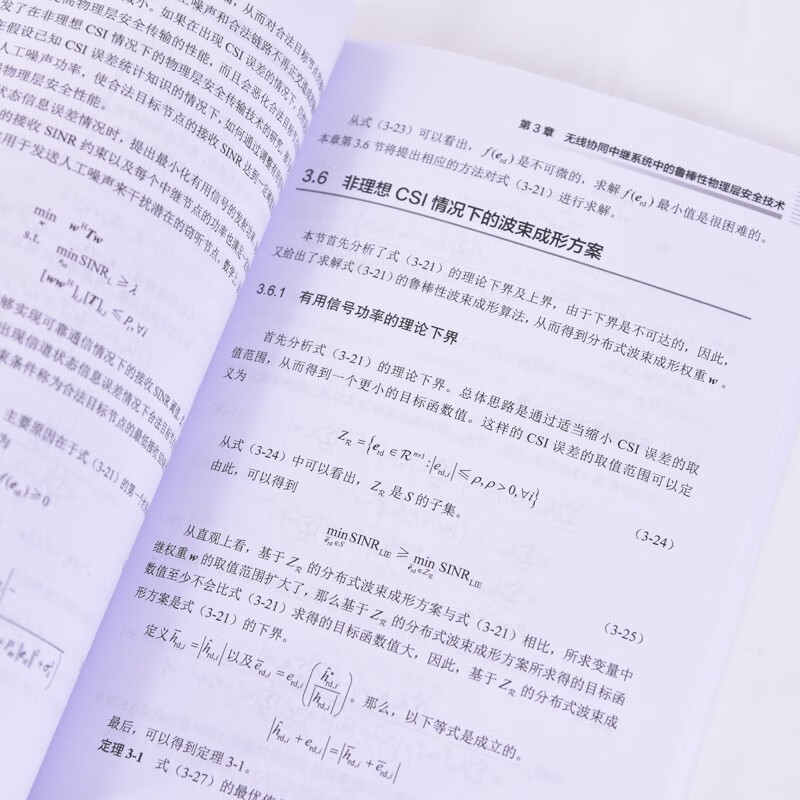 更高物理层安全传输的性能,而且会恶化合法目标
减小。如果在出现 CSI 误差的情况下,
发了在非理想 CSI 情况下的物理层安全传输技术的研究。
在假设已知 CSI 误差统计知识的情况下,如何通过调整
人工噪声功率,使合法目标节点的接收 SINR 达到一定
物理层安全性能。
状态信息误差情况时,提出最小化有用信号的发射功
的接收 SINR 约束以及每个中继节点的功率也满足
用于发送人工噪声来干扰潜在的窃听节点。数学上
min w^H Tw
w
s.t. min SINR_L ≥ λ
[ww^H]_{i,i}[T]_{i,i} ≤ P_i, ∀i
够实现可靠通信情况下的接收 SINR 阈值。
出现信道状态信息误差情况下合法目标节
束条件称为合法目标节点的最低接收
主要原因在于式(3-21)的第一个约
为
f(e_rd) ≥ 0
第 3 章 无线协同中继系统中的鲁棒性物理层安全技术
从式(3-23)可以看出,f(e_rd) 是不可微的,求解 f(e_rd) 最小值是很困难的。
本章第 3.6 节将提出相应的方法对式(3-21)进行求解。
3.6 非理想 CSI 情况下的波束成形方案
本节首先分析了式(3-21)的理论下界及上界,由于下界是不可达的,因此,
又给出了求解式(3-21)的鲁棒性波束成形算法,从而得到分布式波束成形权重 w。
3.6.1 有用信号功率的理论下界
首先分析式(3-21)的理论下界。总体思路是通过适当缩小 CSI 误差的取
值范围,从而得到一个更小的目标函数值。这样的 CSI 误差的取值范围可以定
义为
Z_R = {e_rd ∈ R^{n×1} : |e_{rd,i}| ≤ ρ, ρ > 0, ∀i} (3-24)
从式(3-24)中可以看出,Z_R 是 S 的子集。
由此,可以得到
min_{e_rd∈S} SINR_LIE ≥ min_{e_rd∈Z_R} SINR_LIE (3-25)
从直观上看,基于 Z_R 的分布式波束成形方案与式(3-21)相比,所求变量中
继权重 w 的取值范围扩大了,那么基于 Z_R 的分布式波束成形方案所求得的目标函
数值至少不会比式(3-21)求得的目标函数值大,因此,基于 Z_R 的分布式波束成
形方案是式(3-21)的下界。
定义 h̄_{rd,i} = |ĥ_{rd,i}| 以及 ē_{rd,i} = e_{rd,i}(ĥ*_{rd,i}/|ĥ_{rd,i}|)。那么,以下等式是成立的。
|ĥ_{rd,i} + e_{rd,i}| = |h̄_{rd,i} + ē_{rd,i}|
最后,可以得到定理 3-1。
定理 3-1 式(3-27)的最优